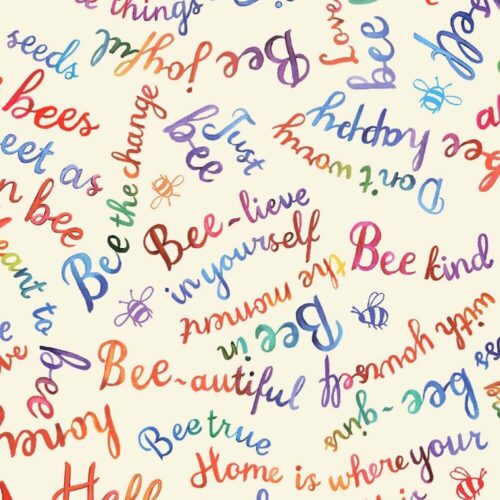 things
seeds
Bee joyful
bee
Love
bee
bees
eet as
n bee
Bee the change
Just
bee
Don't worry
bee happy
Bee-lieve
in yourself
Bee kind
Bee in
the moment
eant to
bee
Bee-autiful
with yourself
bee-gins
Bee true
Home is where your
honey
is
Hell